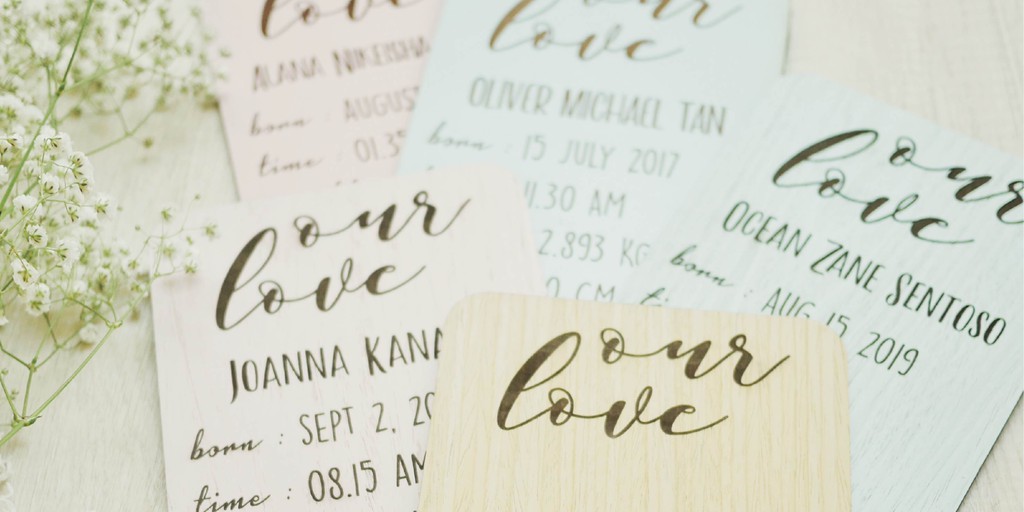 love
ALANA NIKEISHA
born : AUGUST
time : 01.3
our
love
OLIVER MICHAEL TAN
born : 15 JULY 2017
.30 AM
2.893 KG
CM
our
love
OCEAN ZANE SENTOSO
born : AUG 15, 2019
our
love
JOANNA KANA
born : SEPT 2, 20
time : 08.15 AM
our
love